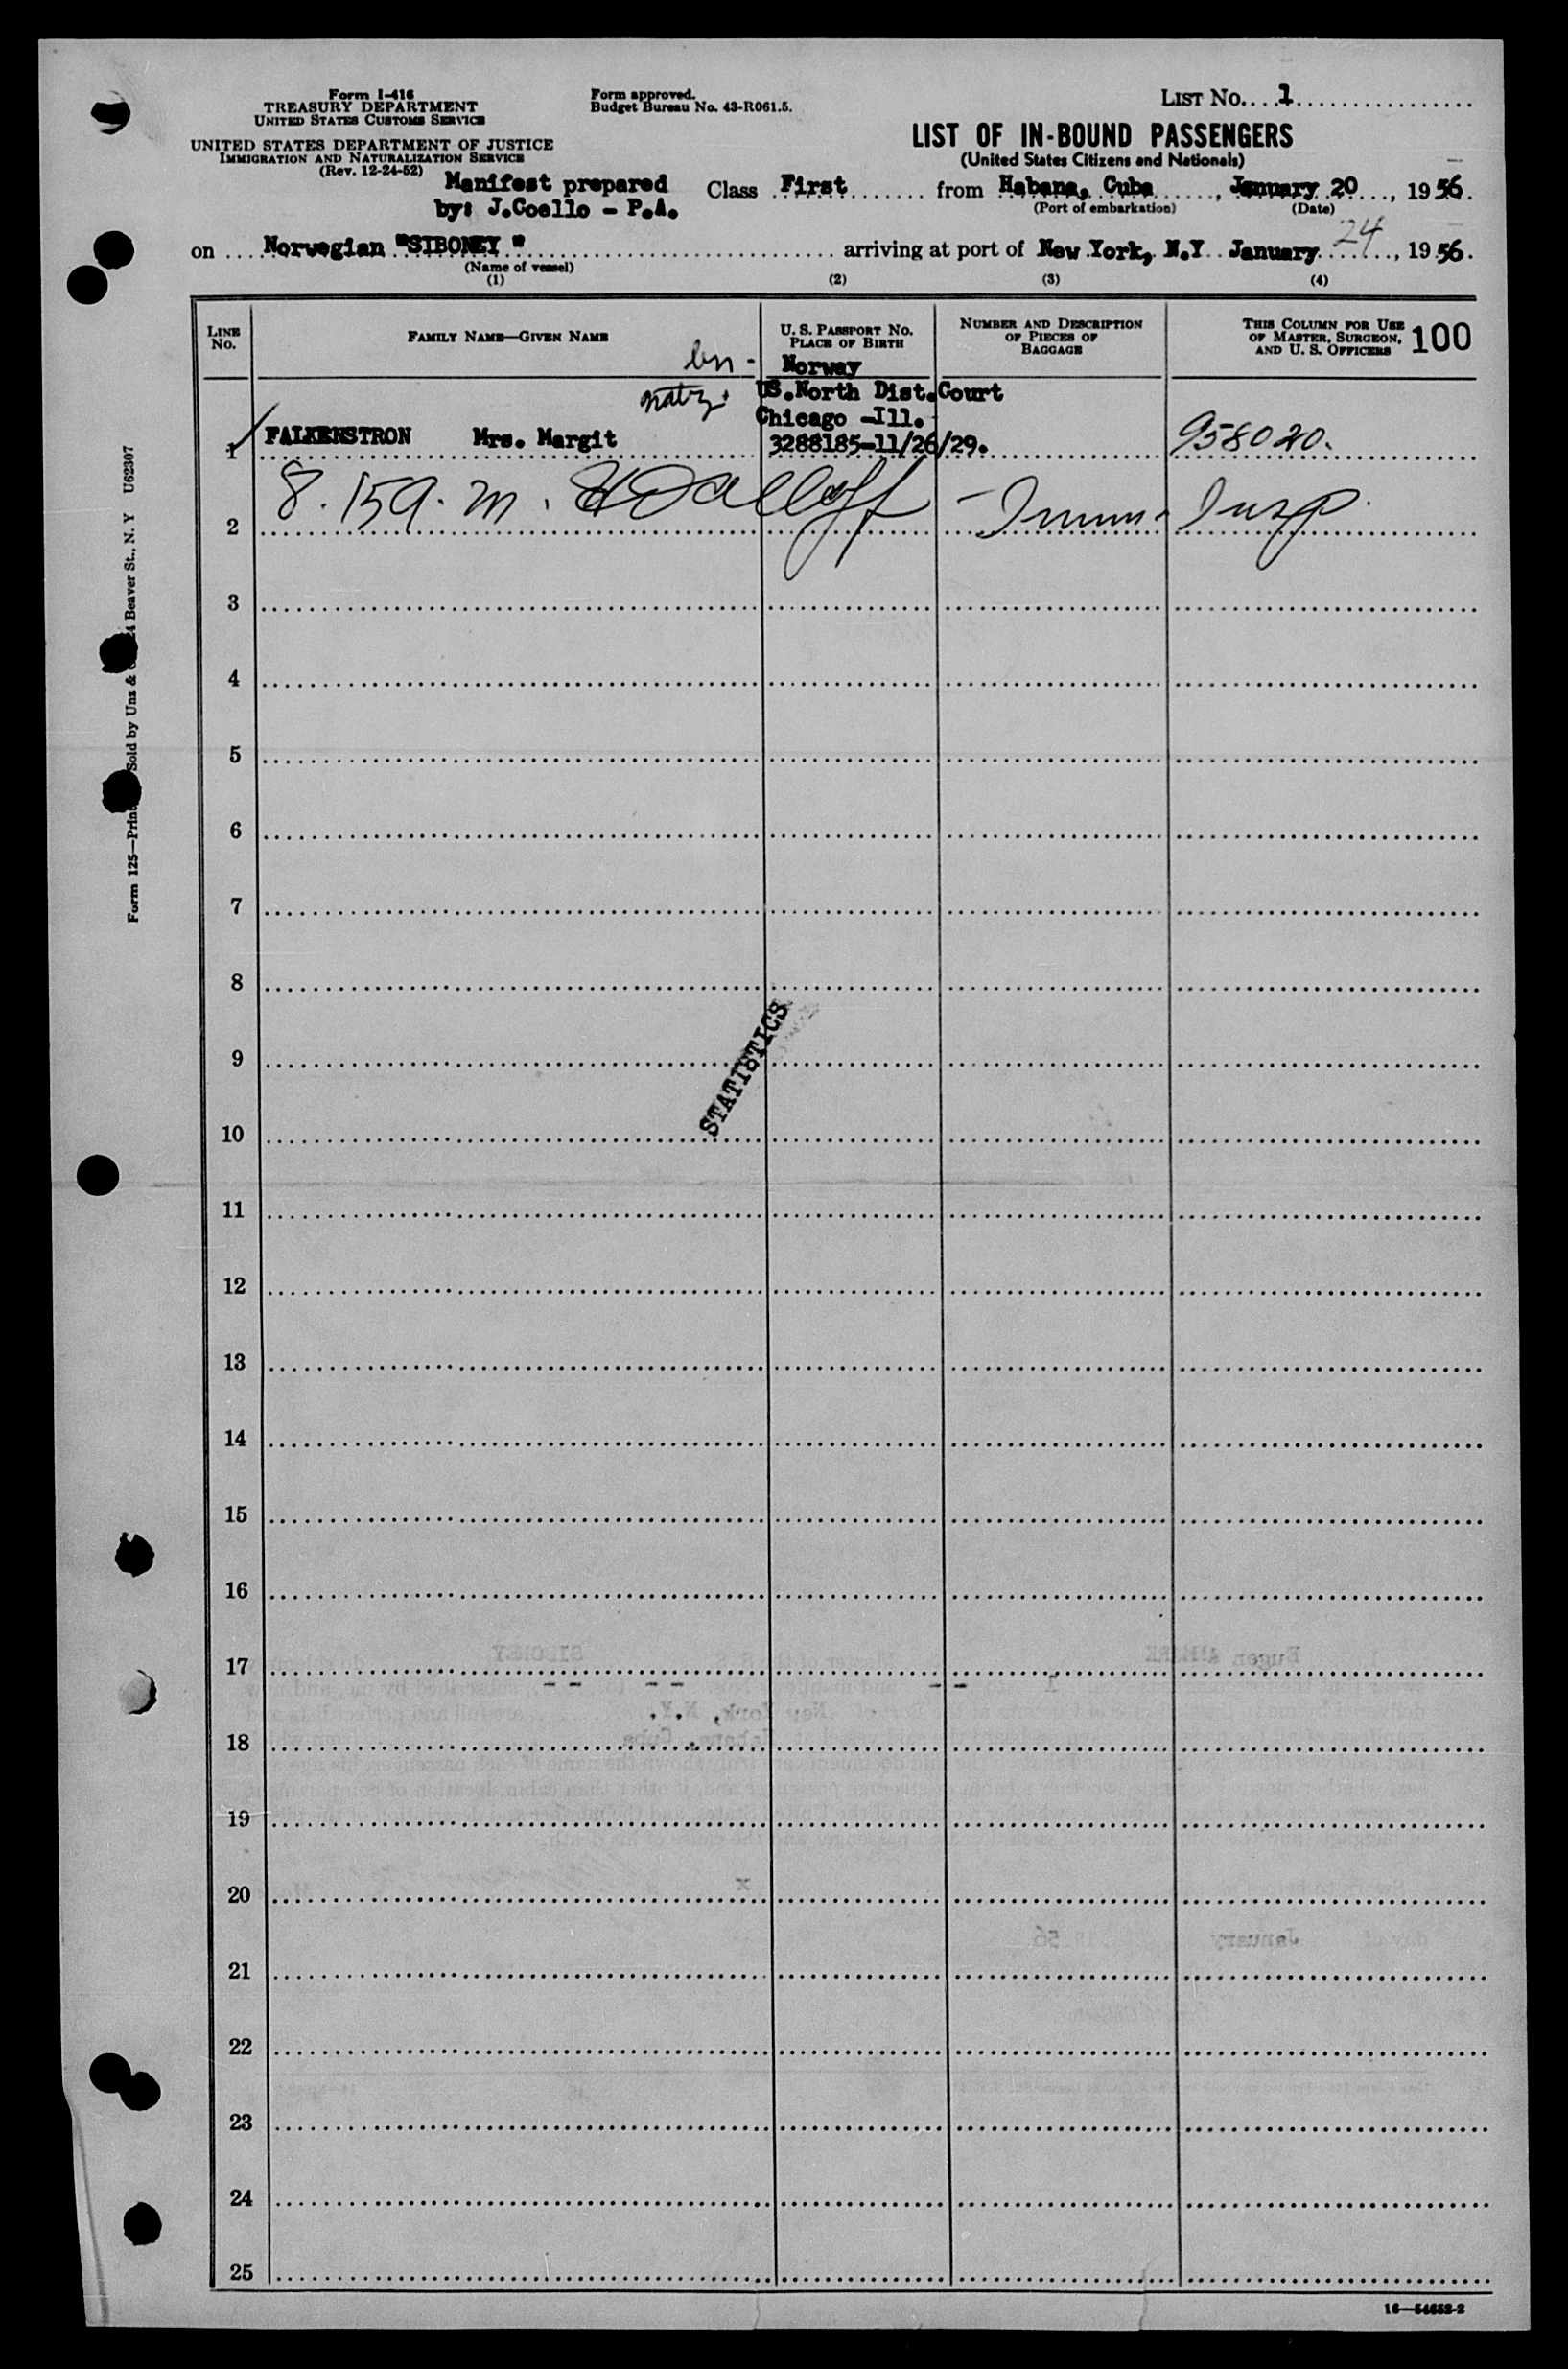 Form I-416
TREASURY DEPARTMENT
UNITED STATES CUSTOMS SERVICE
UNITED STATES DEPARTMENT OF JUSTICE
IMMIGRATION AND NATURALIZATION SERVICE
(Rev. 12-24-52)
Form approved.
Budget Bureau No. 43-R061.5.
LIST NO. 1
LIST OF IN-BOUND PASSENGERS
(United States Citizens and Nationals)
Manifest prepared
by: J.Coello - P.A.
Class First from Habana, Cuba, January 20, 1956.
(Port of embarkation) (Date)
on Norwegian "SIBONEY" arriving at port of New York, N.Y January 24, 1956.
(Name of vessel)
(1) (2) (3) (4)
LINE NO.
FAMILY NAME—GIVEN NAME
U. S. PASSPORT NO.
PLACE OF BIRTH
NUMBER AND DESCRIPTION
OF PIECES OF
BAGGAGE
THIS COLUMN FOR USE
OF MASTER, SURGEON,
AND U. S. OFFICERS
100
Norway
natz. US.North Dist.Court
Chicago -Ill.
1 FALKENSTRON Mrs. Margit 3288185-11/26/29. 958020.
2 8.15 a.m. - Imm. Insp.
3
4
5
6
7
8
9
STATISTICS
10
11
12
13
14
15
16
17
18
19
20
21
22
23
24
25
16—54652-2
Sold by Unz & Beaver St., N. Y U62307
Form 125—
SIBONEY
Eugen
New York, N.Y.
Cuba
January 56